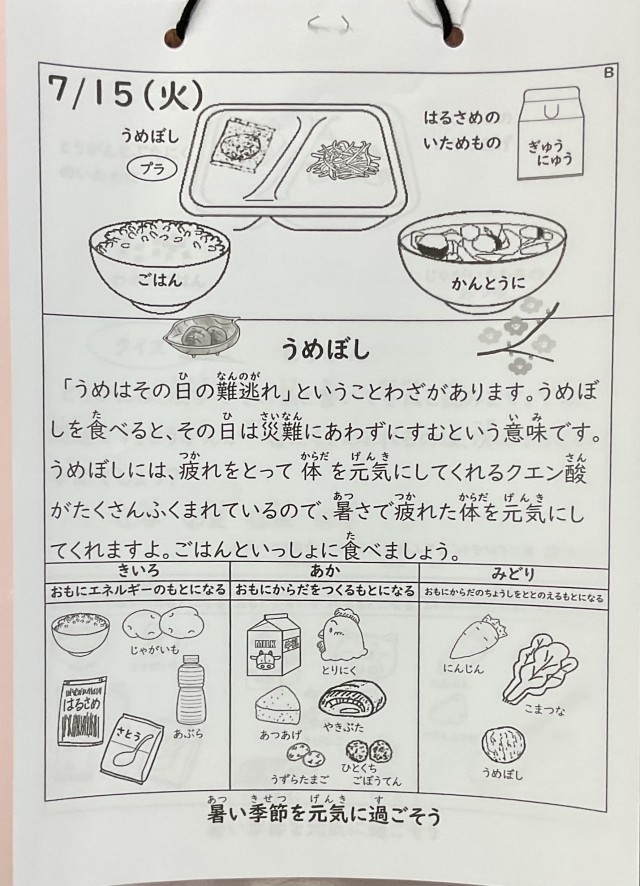 B
7/15(火)
うめぼし
プラ
はるさめの
いためもの
ぎゅう
にゅう
ごはん
かんとうに
うめぼし
「うめはその日の難逃れ」ということわざがあります。うめぼ
しを食べると、その日は災難にあわずにすむという意味です。
うめぼしには、疲れをとって体を元気にしてくれるクエン酸
がたくさんふくまれているので、暑さで疲れた体を元気にし
てくれますよ。ごはんといっしょに食べましょう。
きいろ
おもにエネルギーのもとになる
じゃがいも
はるさめ
さとう
あぶら
あか
おもにからだをつくるもとになる
MILK
牛乳
とりにく
あつあげ
やきぶた
うずらたまご
ひとくち
ごぼうてん
みどり
おもにからだのちょうしをととのえるもとになる
にんじん
こまつな
うめぼし
暑い季節を元気に過ごそう